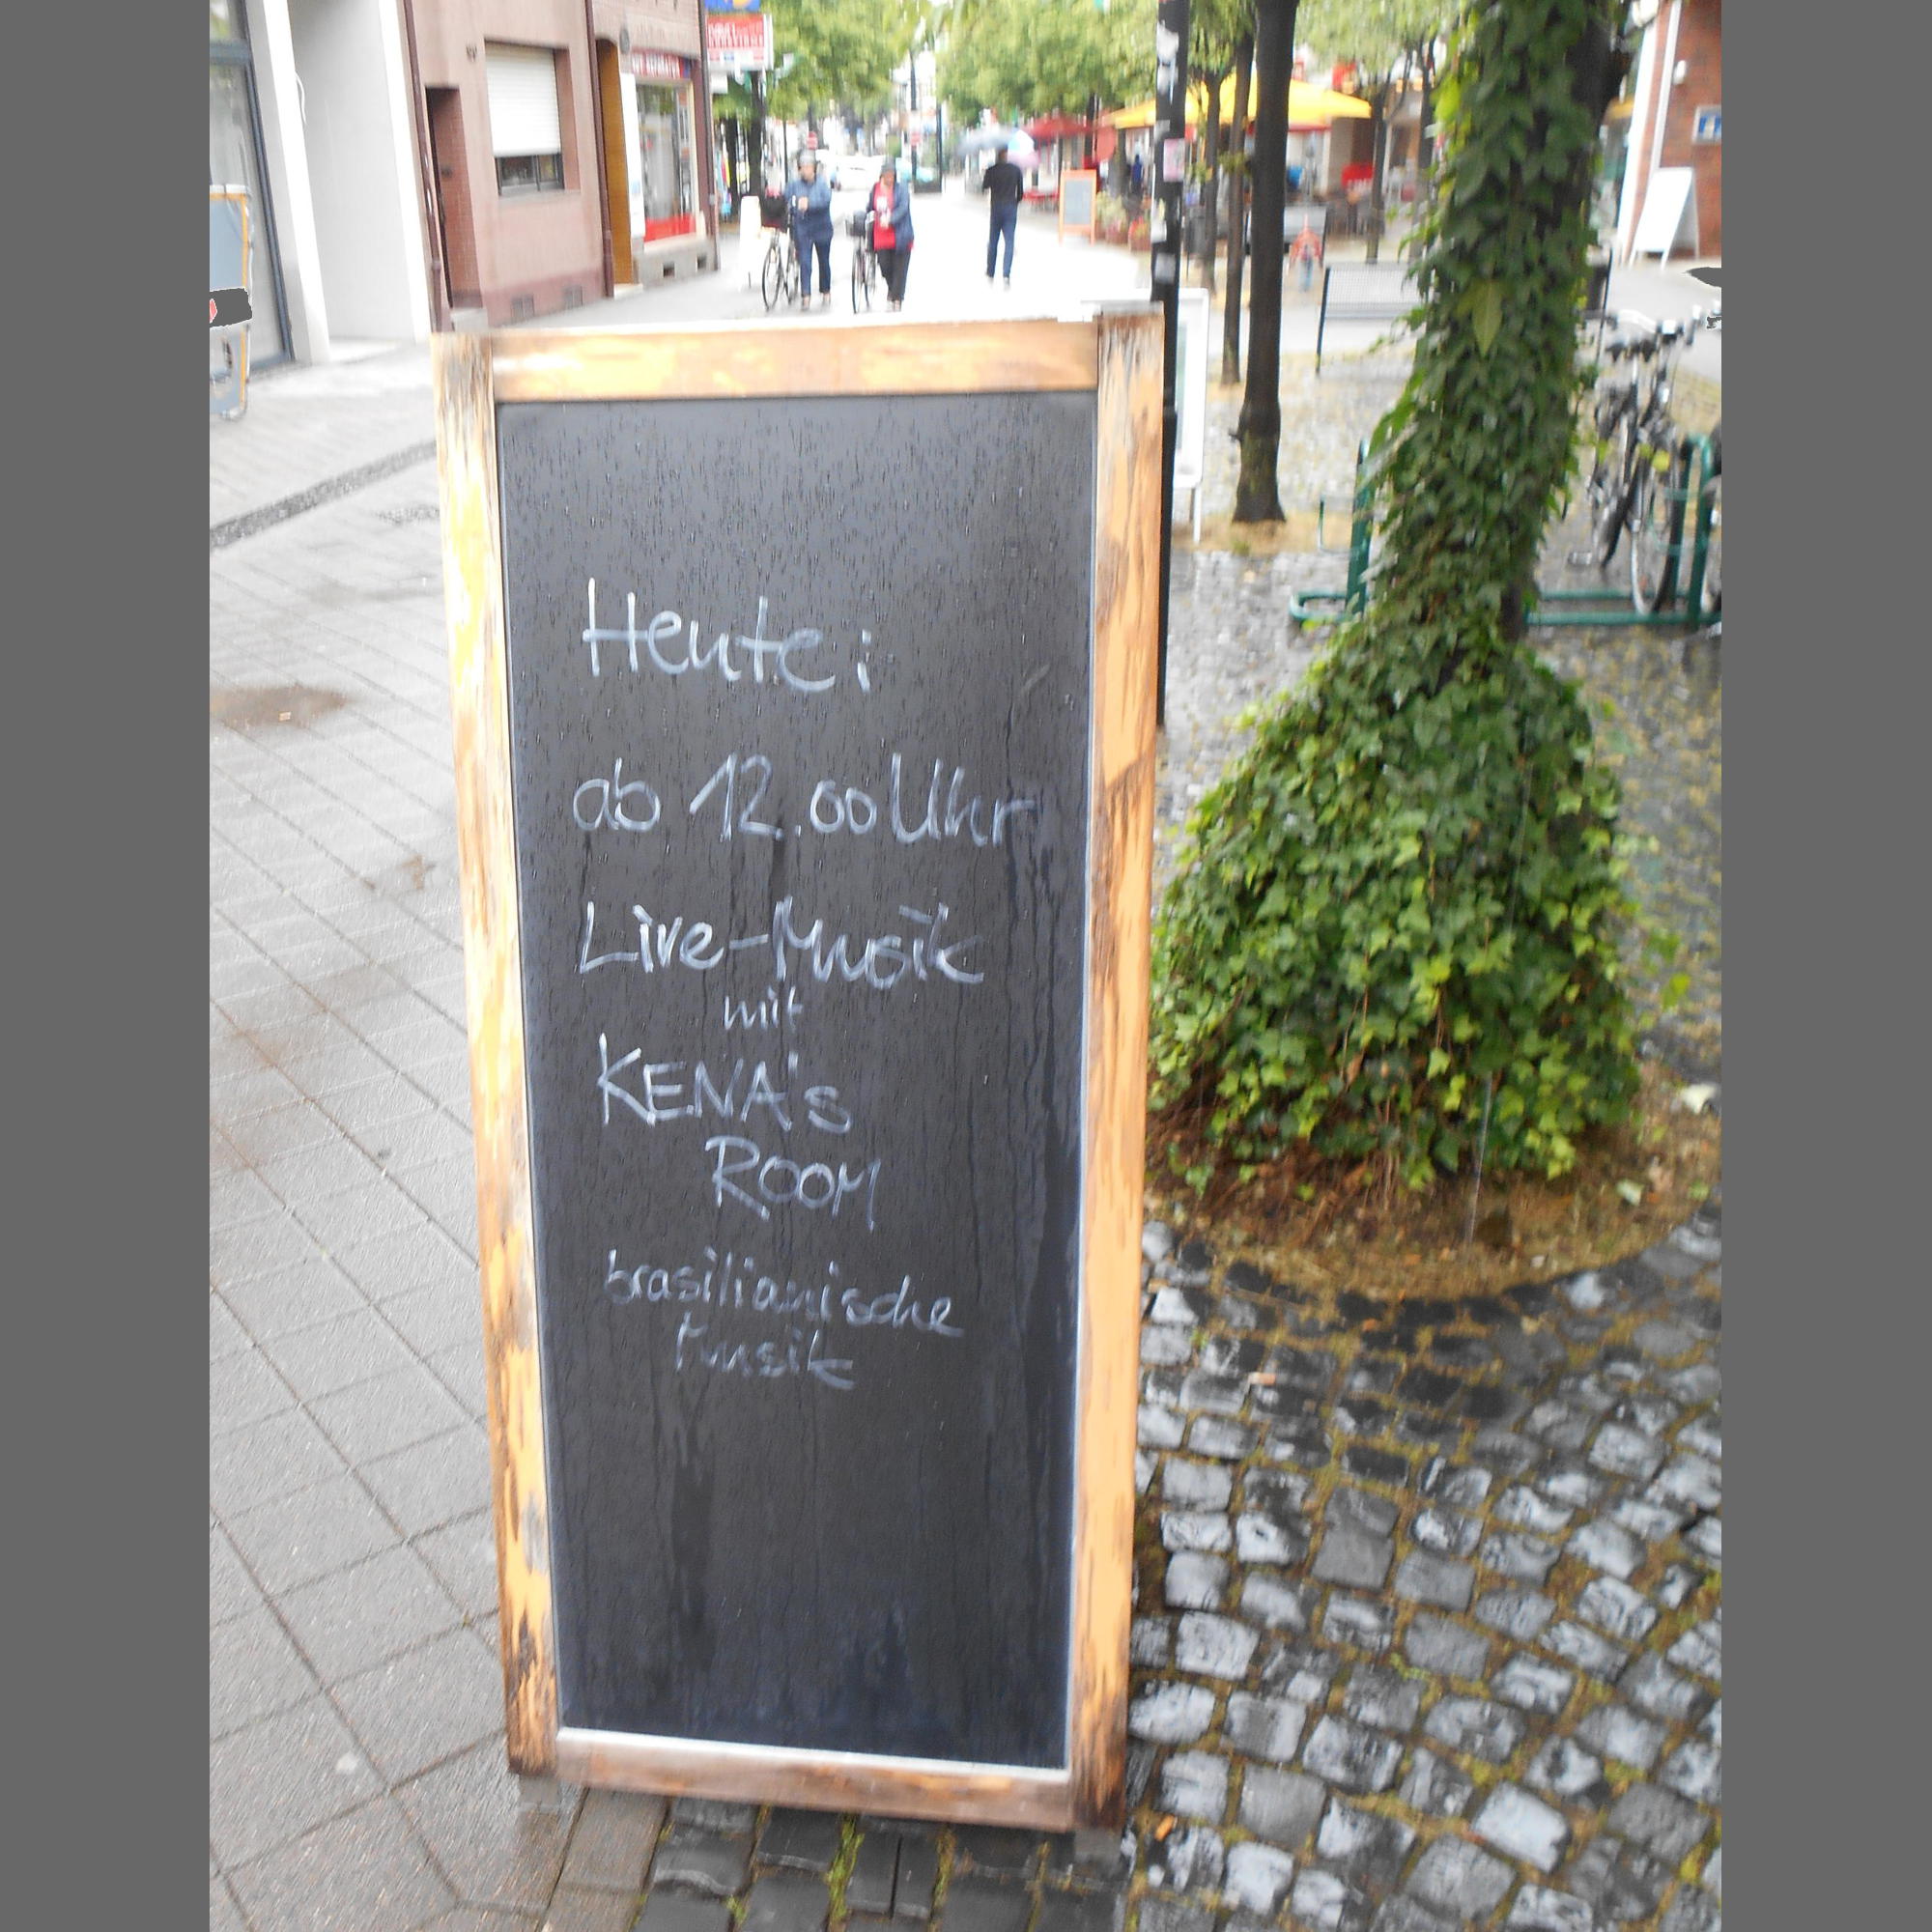 Heute:
ab 12.00 Uhr
Live-Musik
mit
KENA's
ROOM
brasilianische
Musik